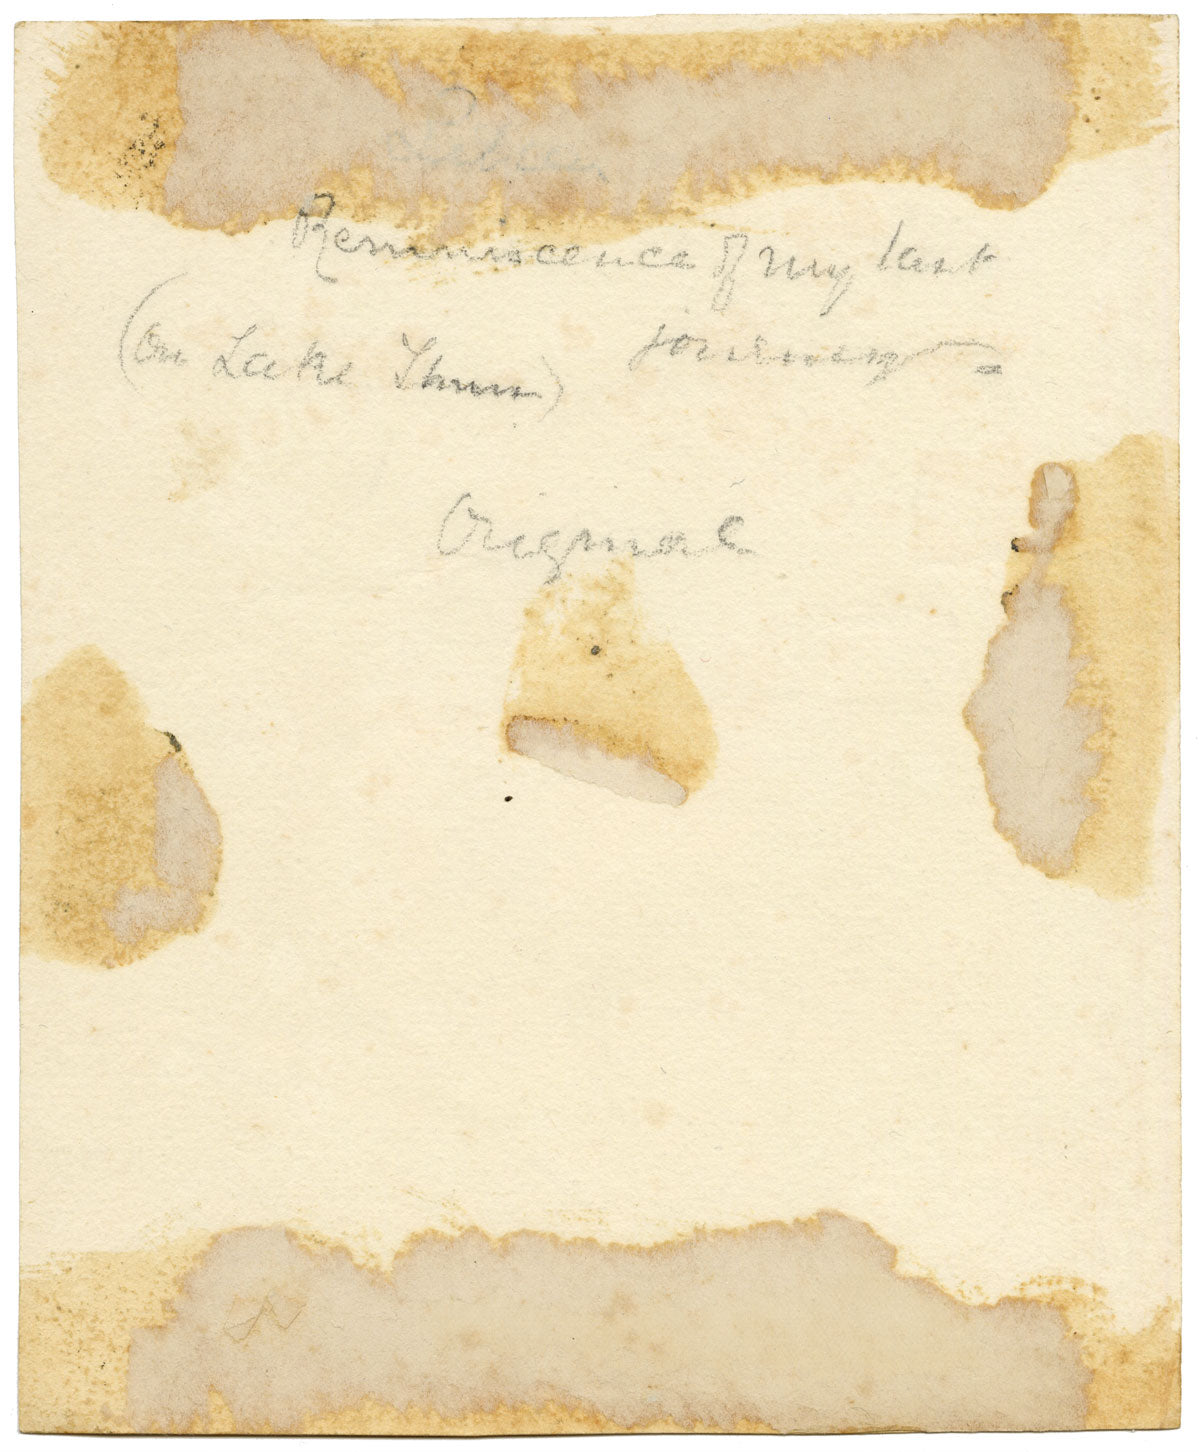 Reminiscence of my last
journey =
(On Lake Thun)
Original